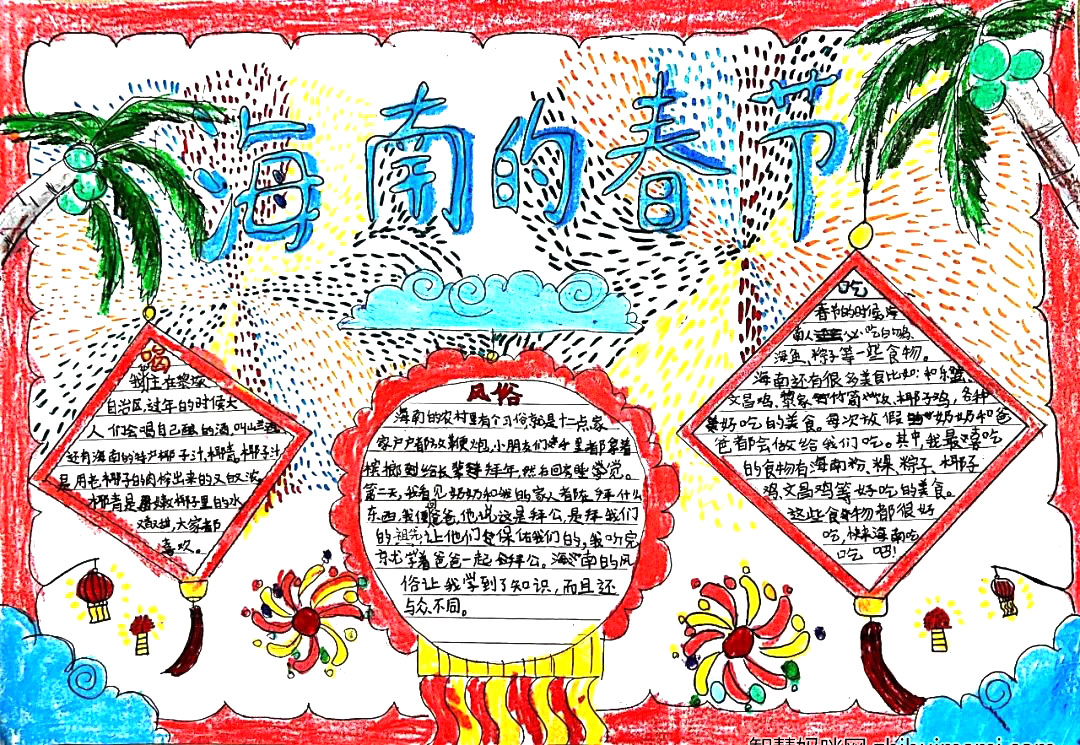 海南的春节
喝
我住在黎族
自治区,过年的时候大
人们会喝自己酿的酒,叫山兰酒,
还有海南的特产椰子汁、椰青,椰子汁
是用老椰子的肉榨出来的又白又浓,
椰青是最嫩椰子里的水
大家都
喜欢。
风俗
海南的农村里有个习俗就是十二点家
家户户都放鞭炮,小朋友们手里都拿着
槟榔到给长辈拜年然后回去睡觉。
第二天,我看见奶奶和我的家人都在拜什么
东西,我便问爸爸,他说这是拜公,是拜我们
的祖先让他们保佑我们的,我听完
就学着爸爸一起拜公。海南的风
俗让我学到了知识,而且还
与众不同。
吃
春节的时候,海
南人必吃白切鸡、
海鱼、粽子等一些食物。
海南还有很多美食比如:和乐蟹、
文昌鸡、黎家竹筒饭、椰子鸡,各种
美好吃的美食。每次放假奶奶和爸
爸都会做给我们吃。其中,我最喜吃
的食物有海南粉、粿粽子、椰子
鸡、文昌鸡等好吃的美食。
这些食物都很好
吃,快来海南吃
吃吧!
智慧妈咪网